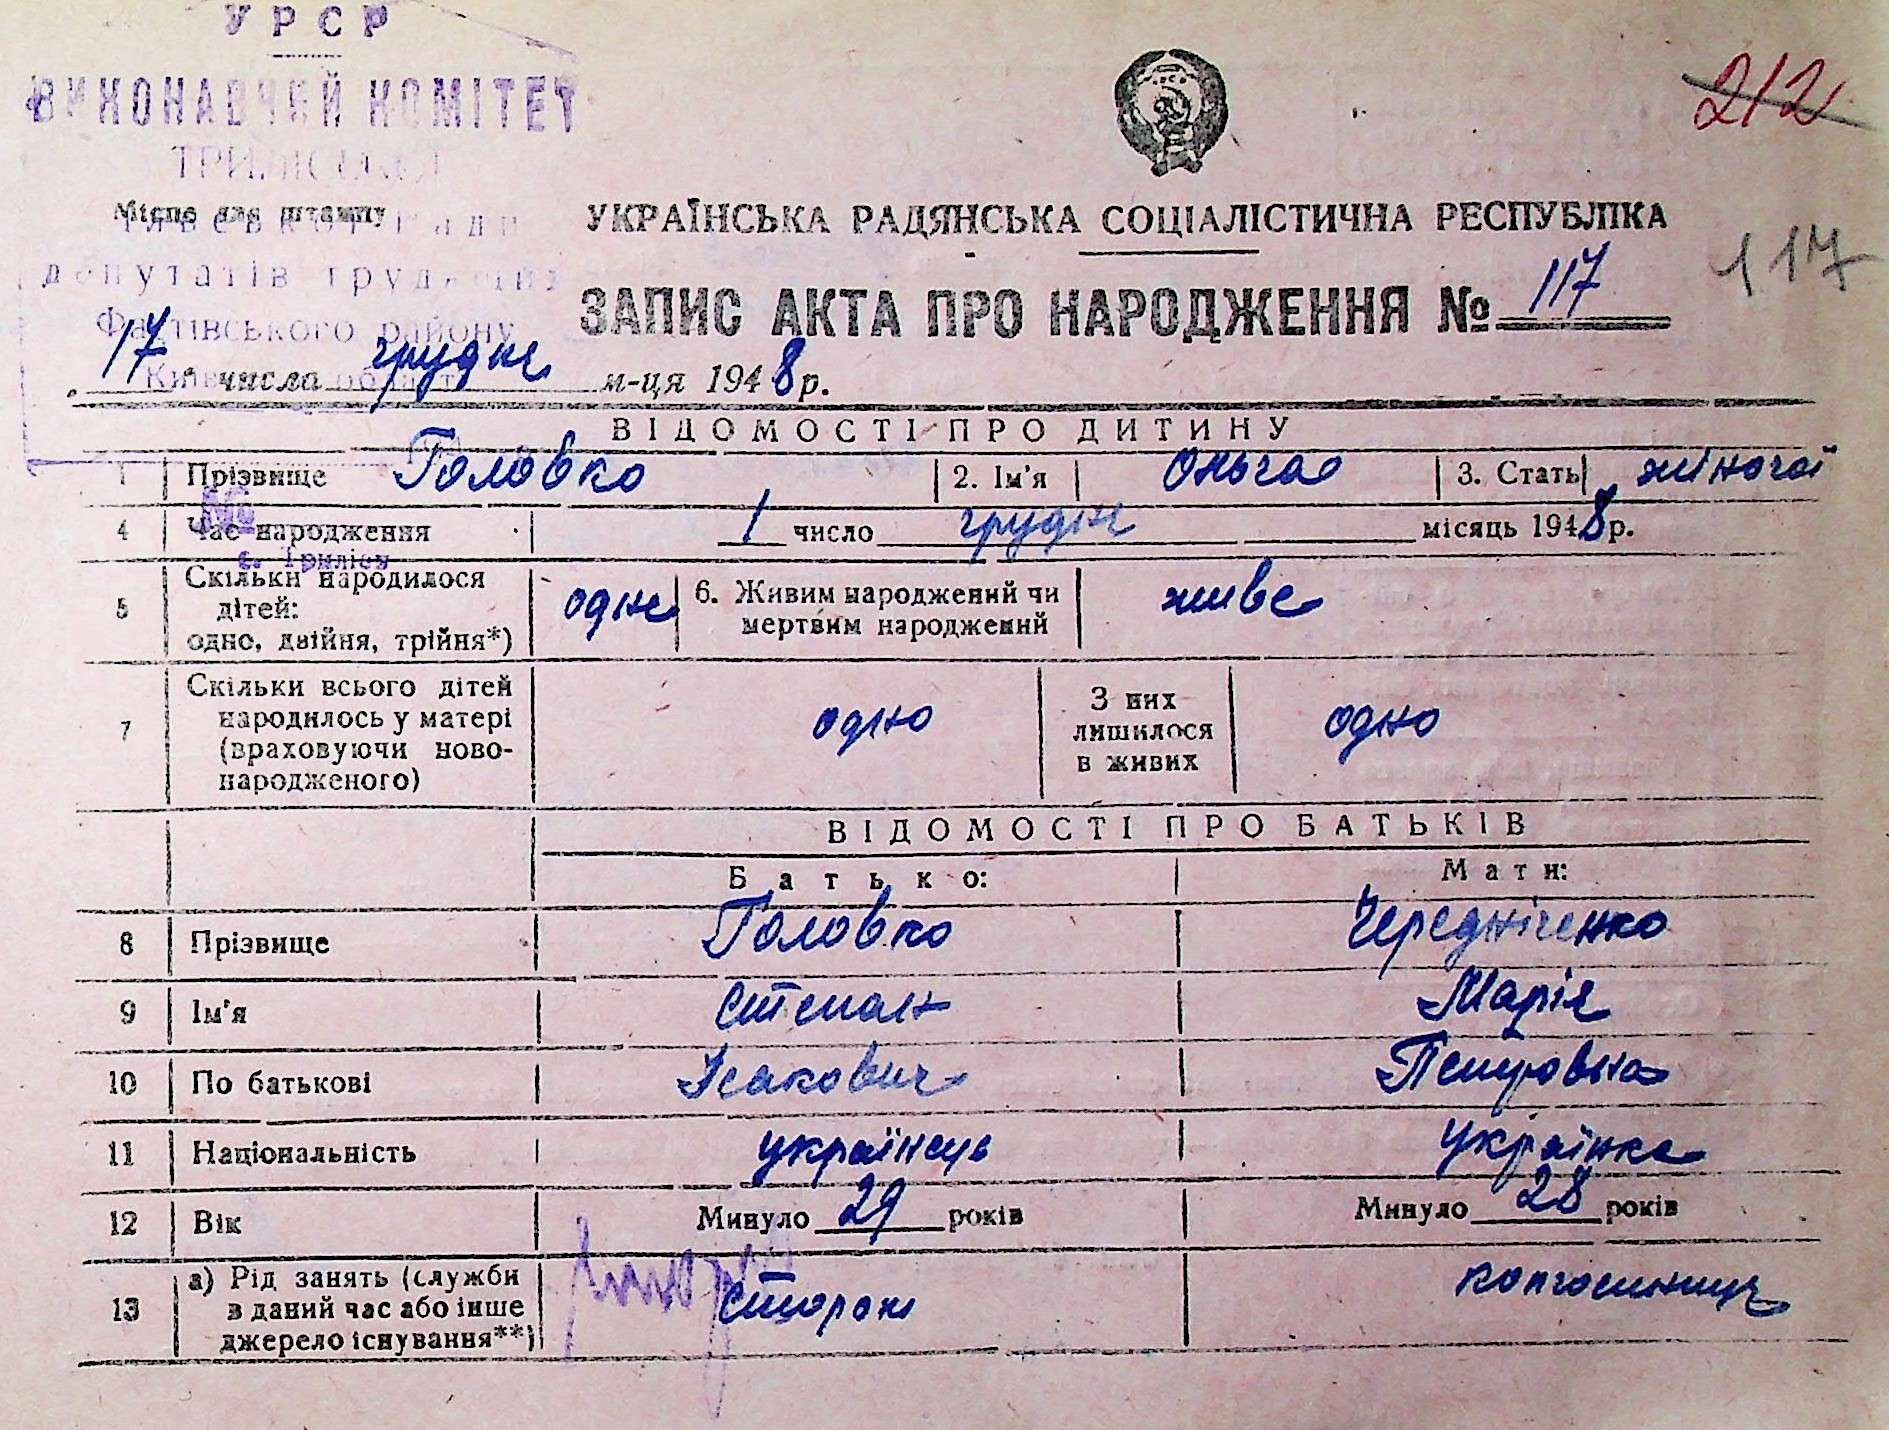 УРСР
ВИКОНАВЧИЙ КОМІТЕТ
Місце для штампу
депутатів трудящих
Фастівського району
212
УКРАЇНСЬКА РАДЯНСЬКА СОЦІАЛІСТИЧНА РЕСПУБЛІКА
117
ЗАПИС АКТА ПРО НАРОДЖЕННЯ № 117
"17" числа грудня м-ця 1948 р.
ВІДОМОСТІ ПРО ДИТИНУ
1 Прізвище Головко 2. Ім'я Ольга 3. Стать жіночої
№
4 Час народження 1 число грудня місяць 1948 р.
с. Триліси
5 Скільки народилося дітей: одно, двійня, трійня*) одне 6. Живим народжений чи мертвим народжений живе
7 Скільки всього дітей народилось у матері (враховуючи новонародженого) одно З них лишилося в живих одно
ВІДОМОСТІ ПРО БАТЬКІВ
Батько: Мати:
8 Прізвище Головко Чередніченко
9 Ім'я Степан Марія
10 По батькові Ісакович Петровна
11 Національність українець українка
12 Вік Минуло 29 років Минуло 28 років
13 а) Рід занять (служби в даний час або інше джерело існування**) Сторож колгоспниця